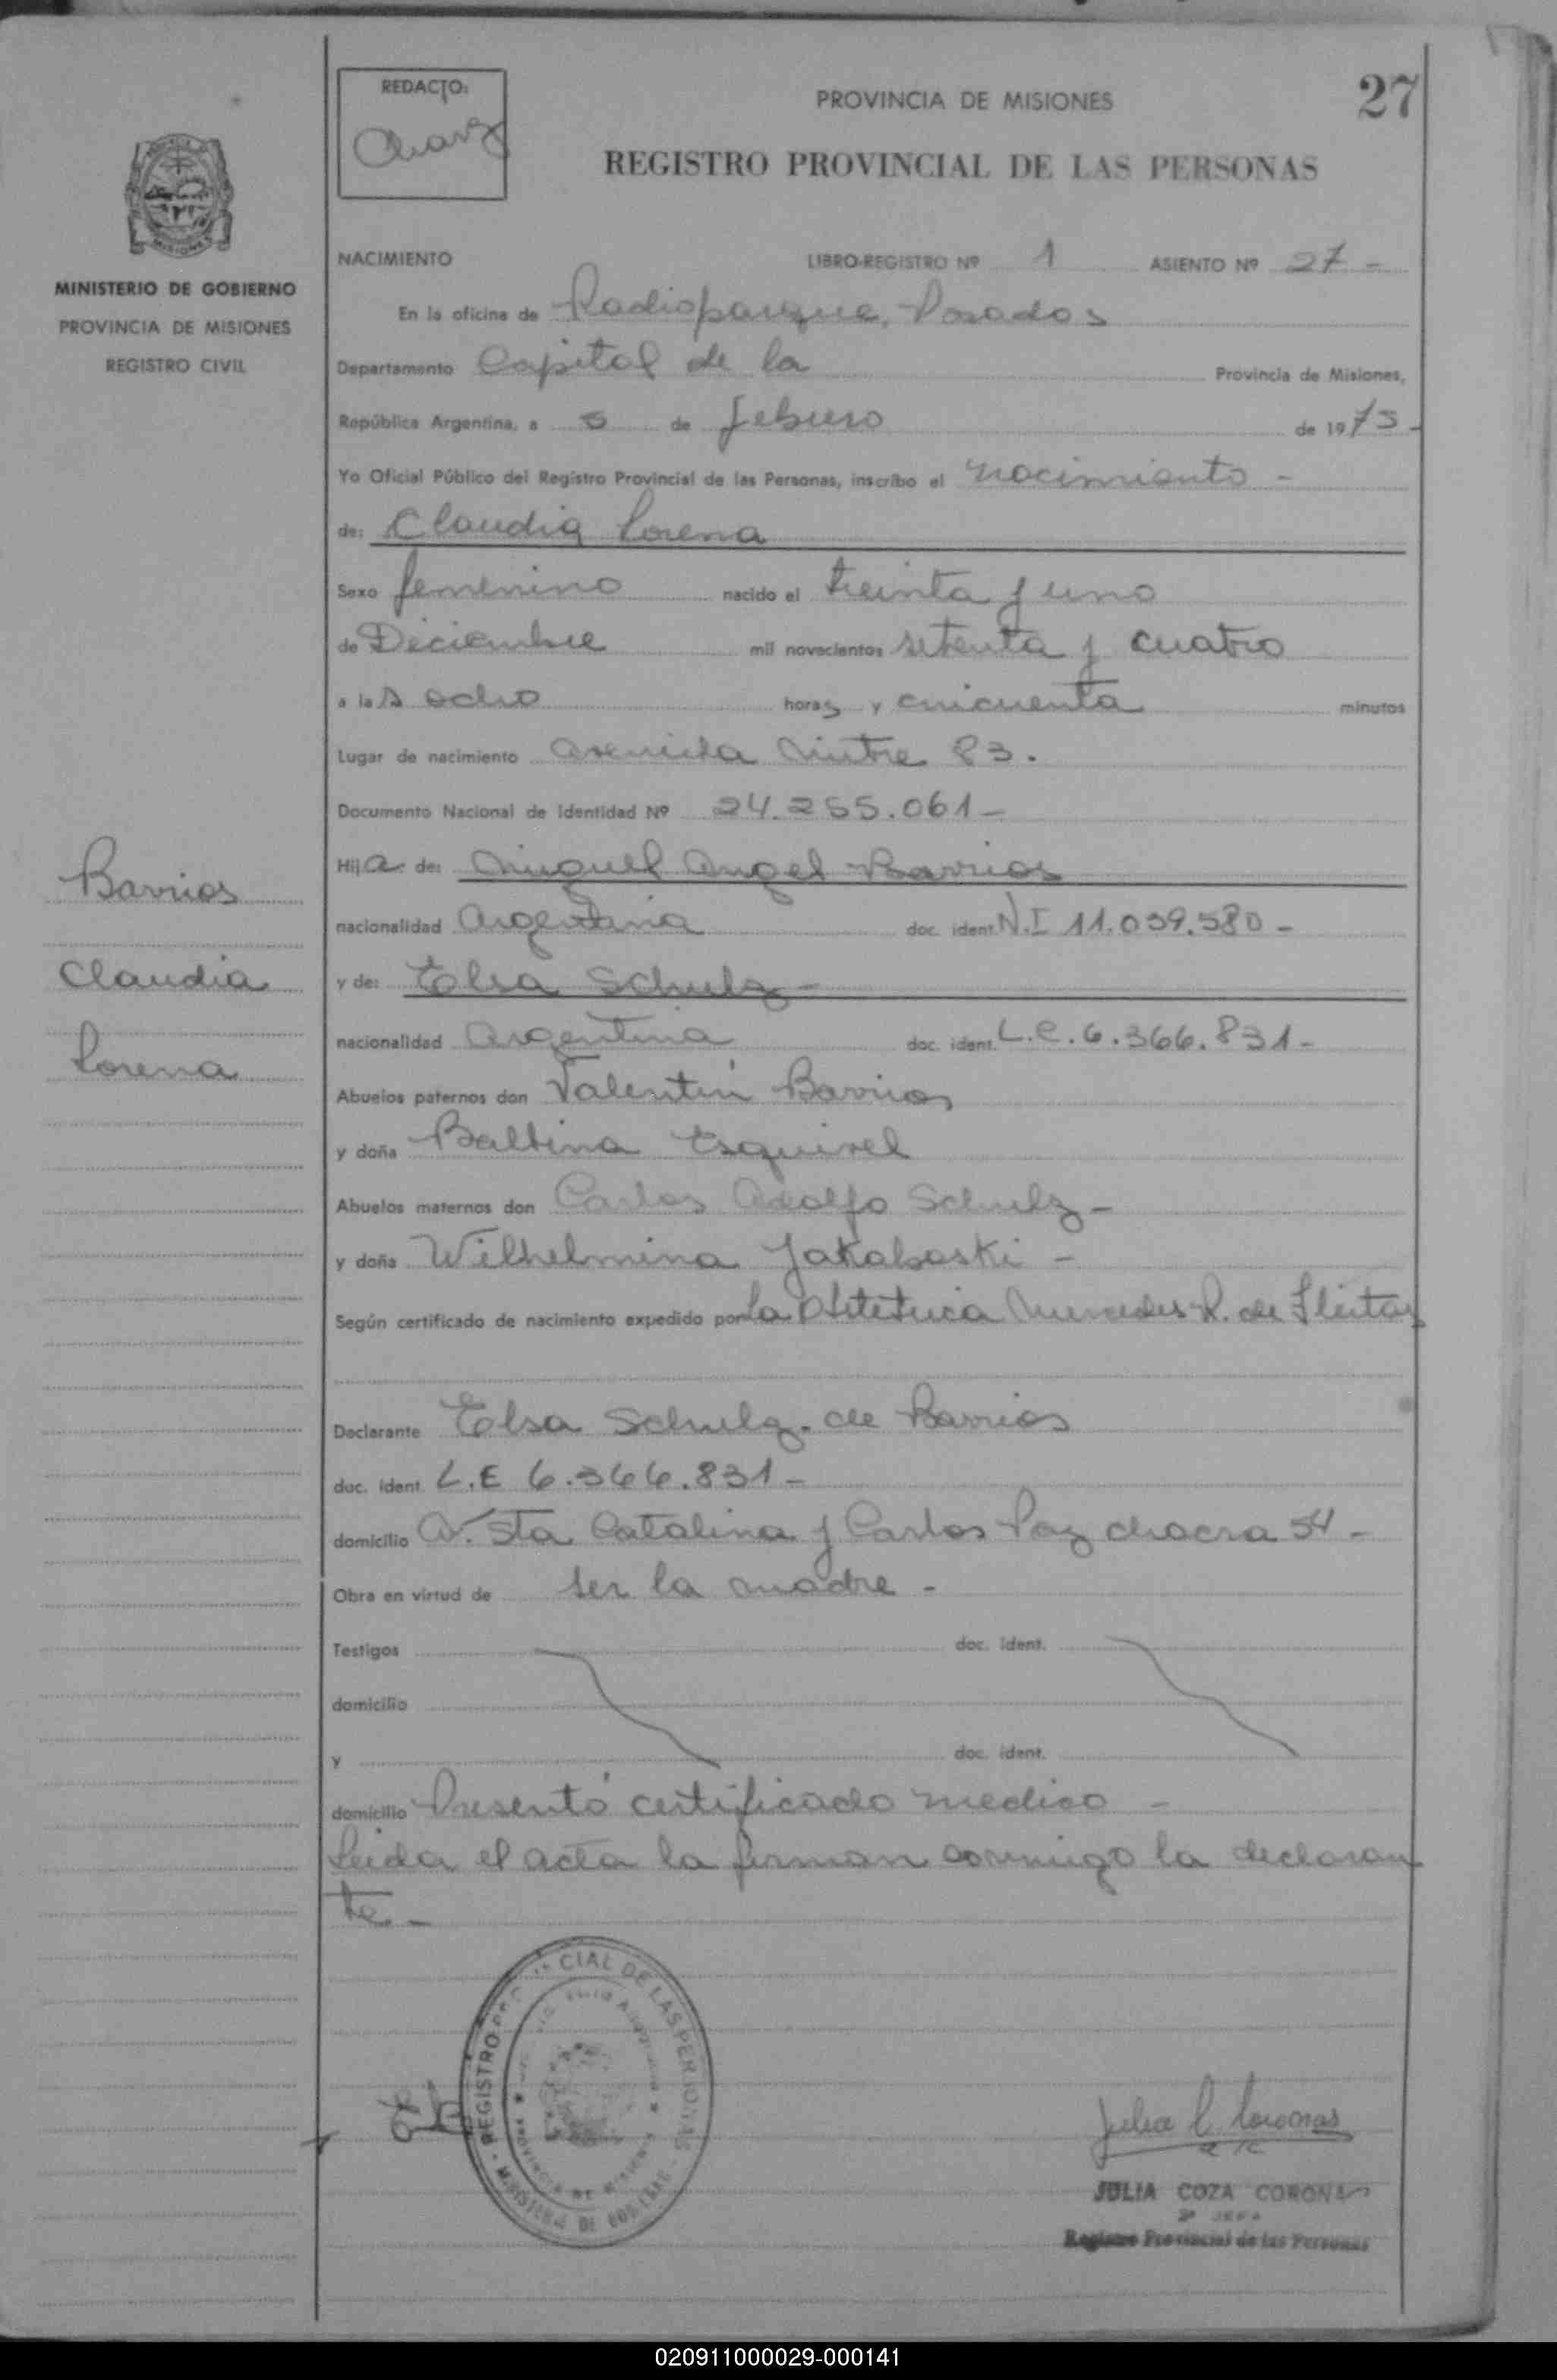 27
REDACTO:
Chavz
PROVINCIA DE MISIONES
REGISTRO PROVINCIAL DE LAS PERSONAS
MISIONES
MINISTERIO DE GOBIERNO
PROVINCIA DE MISIONES
REGISTRO CIVIL
NACIMIENTO LIBRO-REGISTRO Nº 1 ASIENTO Nº 27 -
En la oficina de Radioparque, Posadas
Departamento Capital de la Provincia de Misiones,
República Argentina, a 5 de febrero de 1975 -
Yo Oficial Público del Registro Provincial de las Personas, inscribo el nacimiento -
de: Claudia Lorena
Sexo femenino nacido el treinta y uno
de Diciembre mil novecientos setenta y cuatro
a las ocho horas y cincuenta minutos
Lugar de nacimiento avenida Mitre 83.
Documento Nacional de Identidad Nº 24.255.061 -
Hija de: Miguel Angel Barrios
nacionalidad Argentina doc. ident. N.I 11.039.580 -
y de: Elsa Schulz -
nacionalidad Argentina doc. ident. L.C. 6.366.831 -
Abuelos paternos don Valentín Barrios
y doña Balbina Esquivel
Abuelos maternos don Carlos Adolfo Schulz -
y doña Wilhelmina Jakaboski -
Según certificado de nacimiento expedido por La Obstetrica Mercedes R. de Fleitas
Declarante Elsa Schulz de Barrios
doc. ident. L.E 6.366.831 -
domicilio Av. Sta Catalina y Carlos Paz chacra 54 -
Obra en virtud de ser la madre -
Testigos doc. ident.
domicilio
y doc. ident.
domicilio Presentó certificado medico -
Leida el acta la firman conmigo la declaran
te. -
Barrios
Claudia
Lorena
REGISTRO PROVINCIAL DE LAS PERSONAS
PROVINCIA DE MISIONES
MINISTERIO DE GOBIERNO
Julia C. Coronas
a/c
JULIA COZA CORONAS
2º JEFA
Registro Provincial de las Personas
020911000029-000141